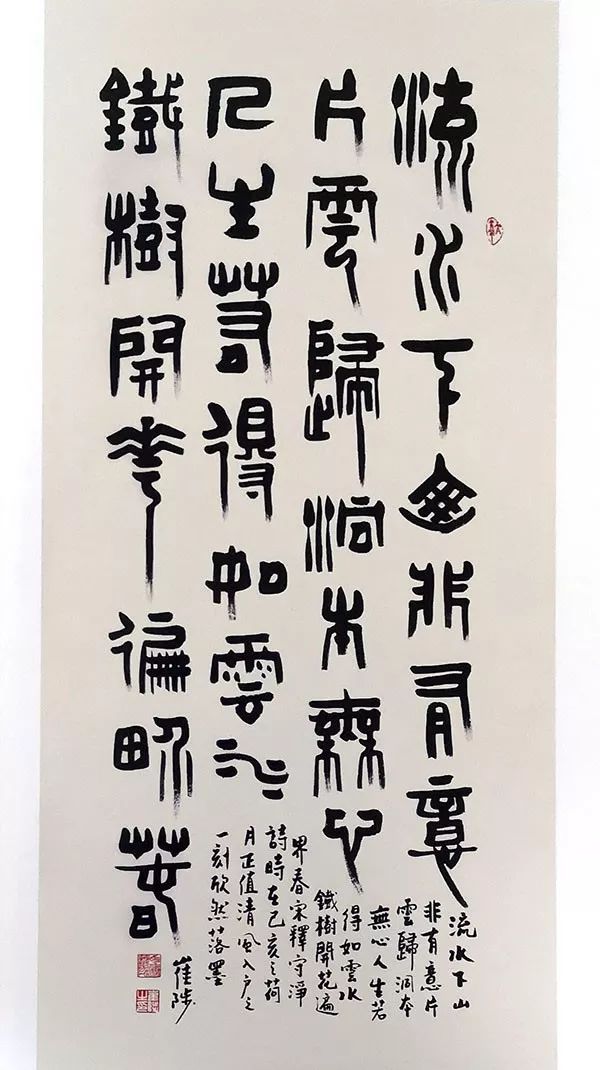 流水下山非有意
片雲歸洞本無心
人生若得如雲水
鐵樹開花遍界春
流水下山
非有意片
雲歸洞本
無心人生若
得如雲水
鐵樹開花遍
界春宋釋守淨
詩時在己亥之荷
月正值清風入户之
一刻欣然落墨
崔陟